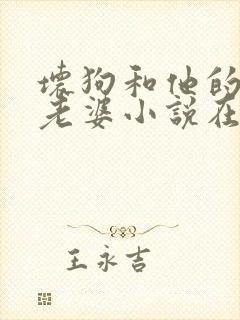 壞狗和他的
老婆小說在
王永吉